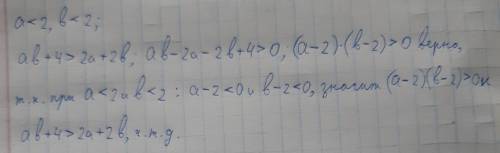 a<2, b<2;
ab+4>2a+2b; ab-2a-2b+4>0; (a-2)·(b-2)>0 верно,
т.к. при a<2 и b<2: a-2<0 и b-2<0, значит (a-2)(b-2)>0 и
ab+4>2a+2b, ч.т.д.